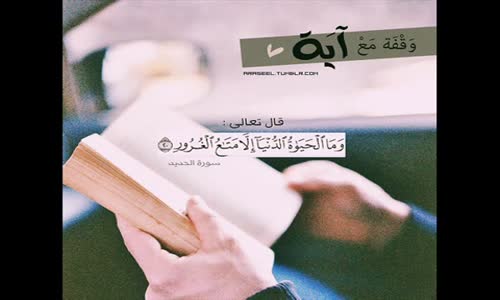 وَقْفَة مَعْ آيَة
ARASEEL.TUMBLR.COM
قال تعالى :
وَمَا الْحَيَوٰةُ الدُّنْيَآ إِلَّا مَتَـٰعُ الْغُرُورِ ٢٠
سورة الحديد